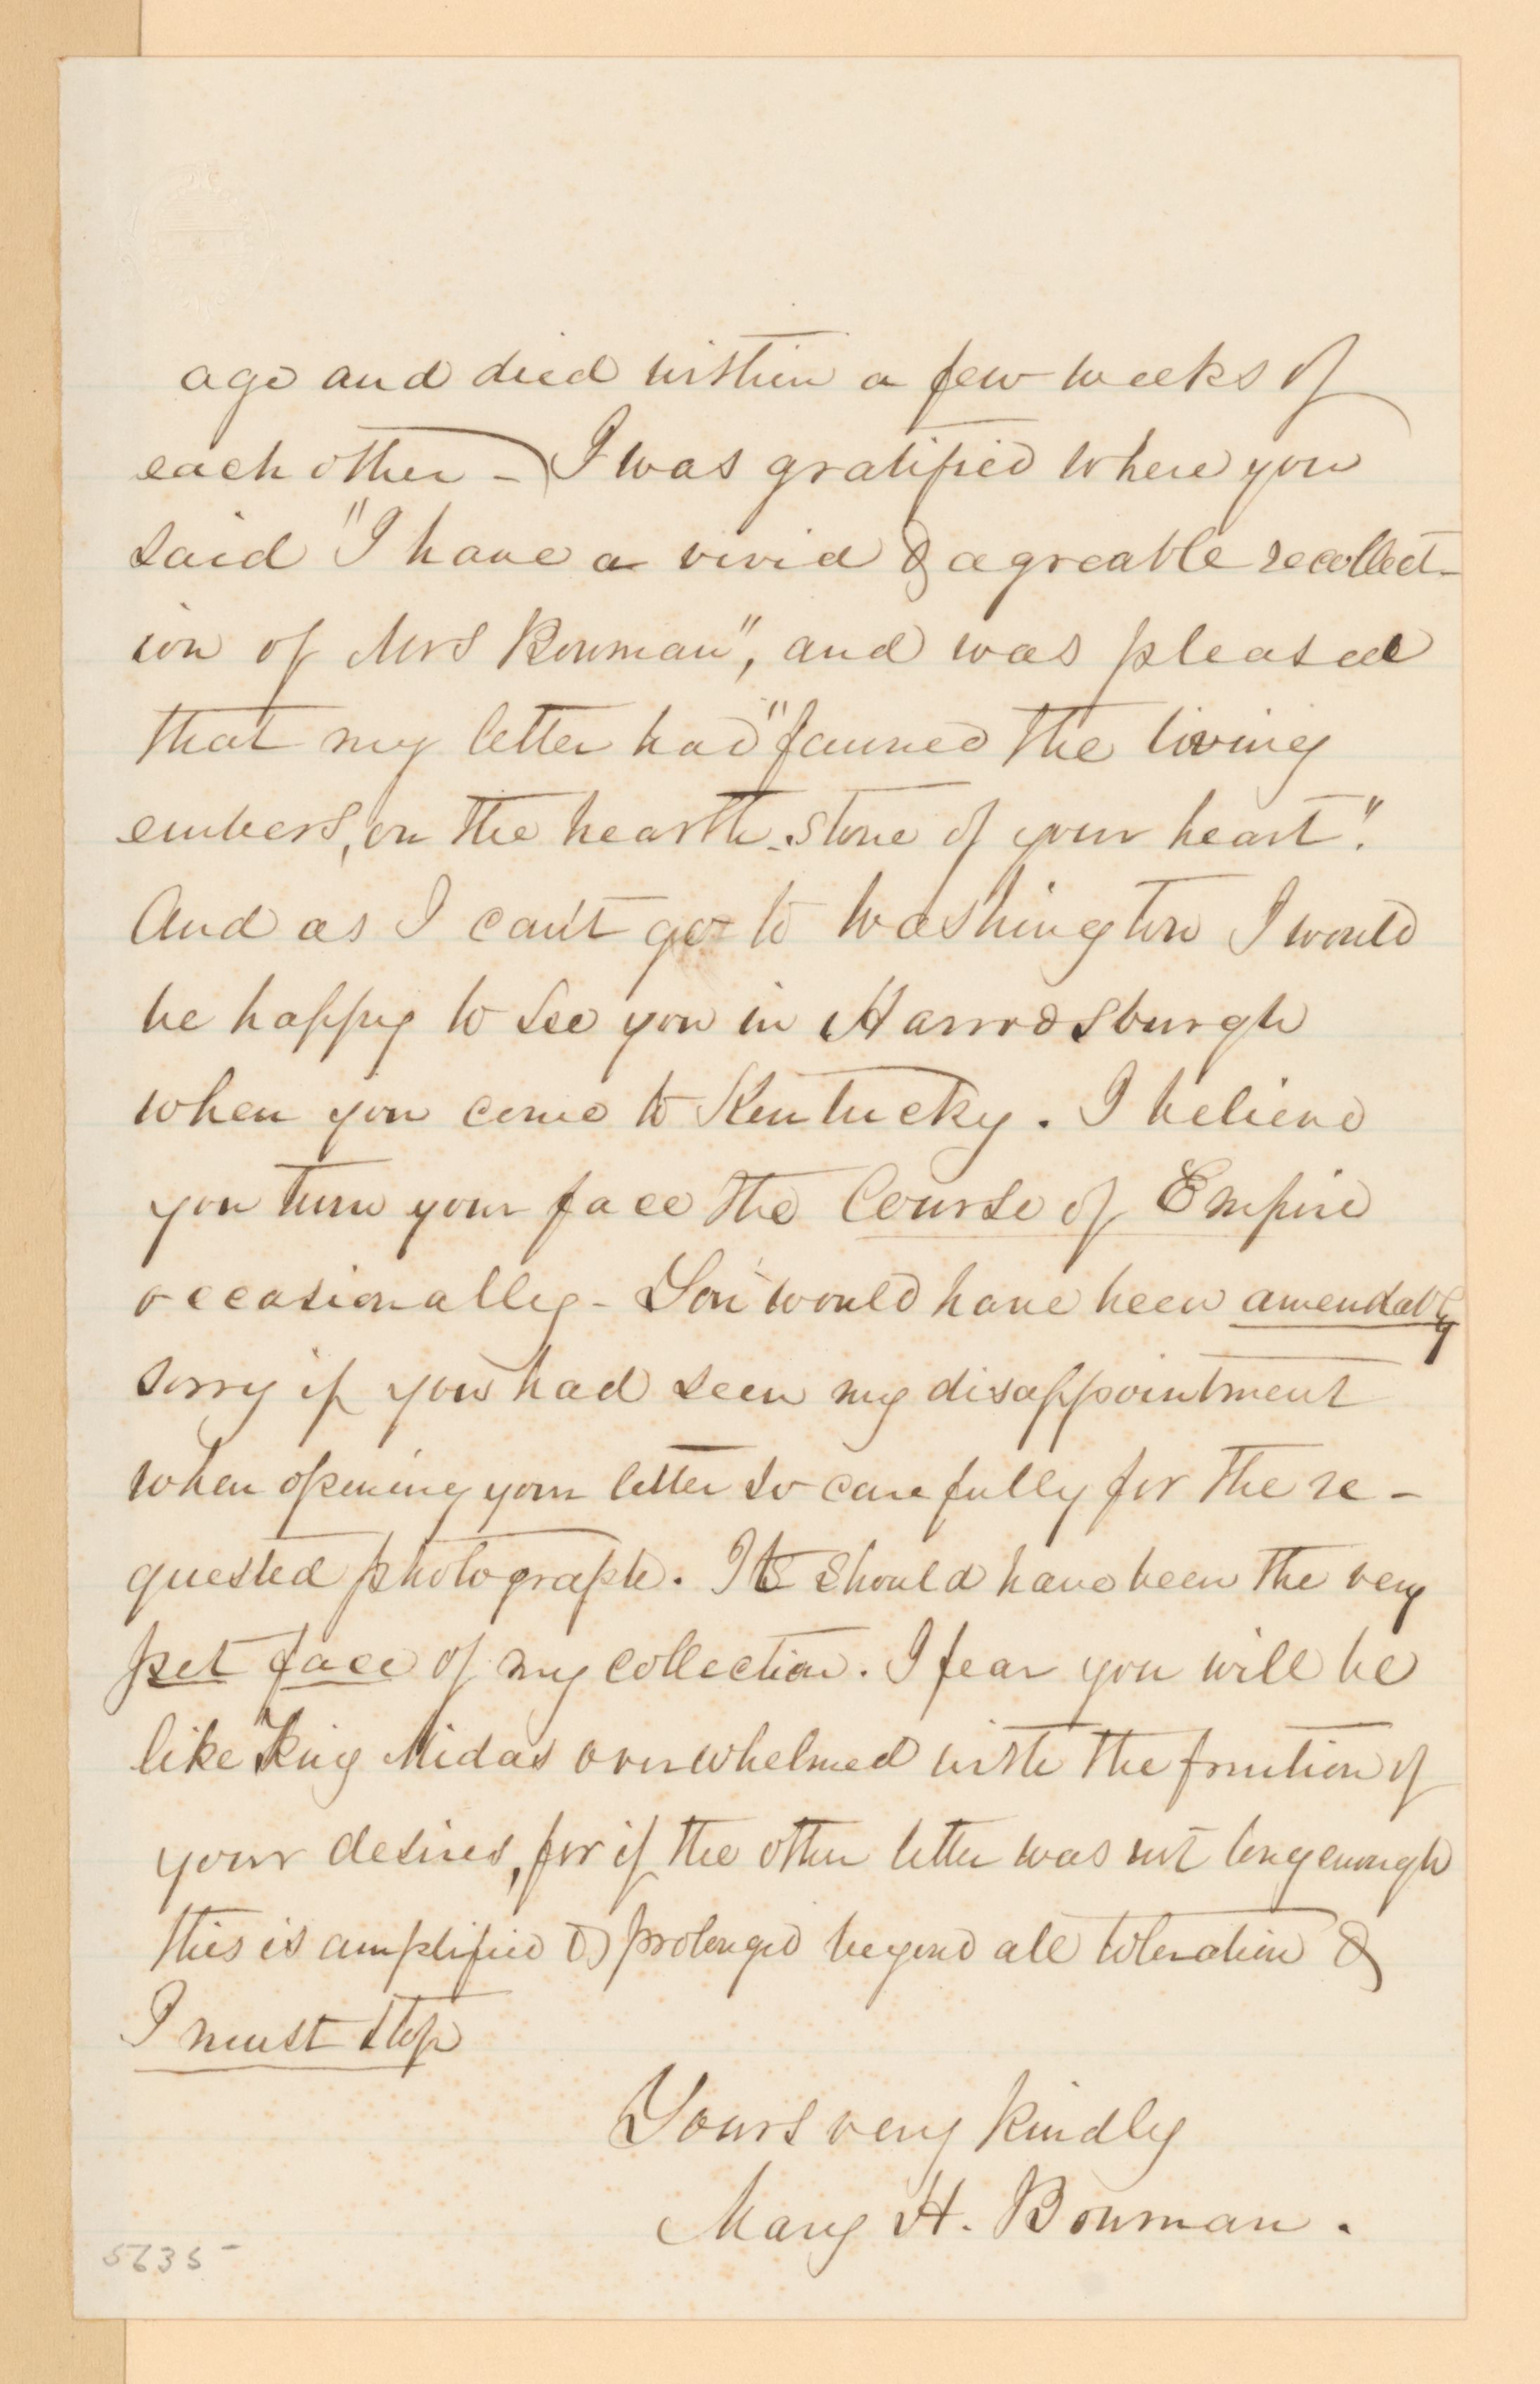 ago and died within a few weeks of
each other - I was gratified where you
said "I have a vivid & agreable recollect-
ion of Mrs Bowman", and was pleased
that my letter had "fanned the living
embers, on the hearth-stone of your heart".
And as I can't go to Washington I would
be happy to see you in Harrodsburgh
when you come to Kentucky. I believe
you turn your face the Course of Empire
occasionally - You would have been amendably
sorry if you had seen my disappointment
when opening your letter so carefully for the re-
quested photograph. It should have been the very
pet face of my collection. I fear you will be
like King Midas overwhelmed with the fruition of
your desires, for if the other letter was not long enough
this is amplified & prolonged beyond all toleration &
I must stop
Yours very kindly
Mary H. Bowman.
5635-